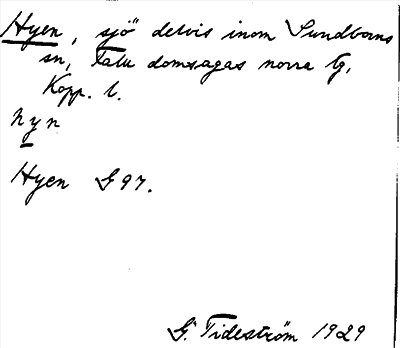 Hyen, sjö delvis inom Sundborns
sn, Falu domsagas norra tg,
Kopp. l.
hyn
Hyen G97.
G. Tideström 1929